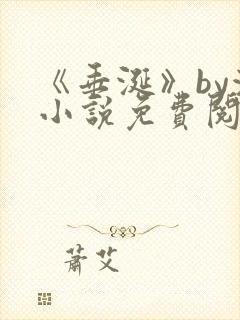 《垂涎》by
小說免費閱
蕭艾